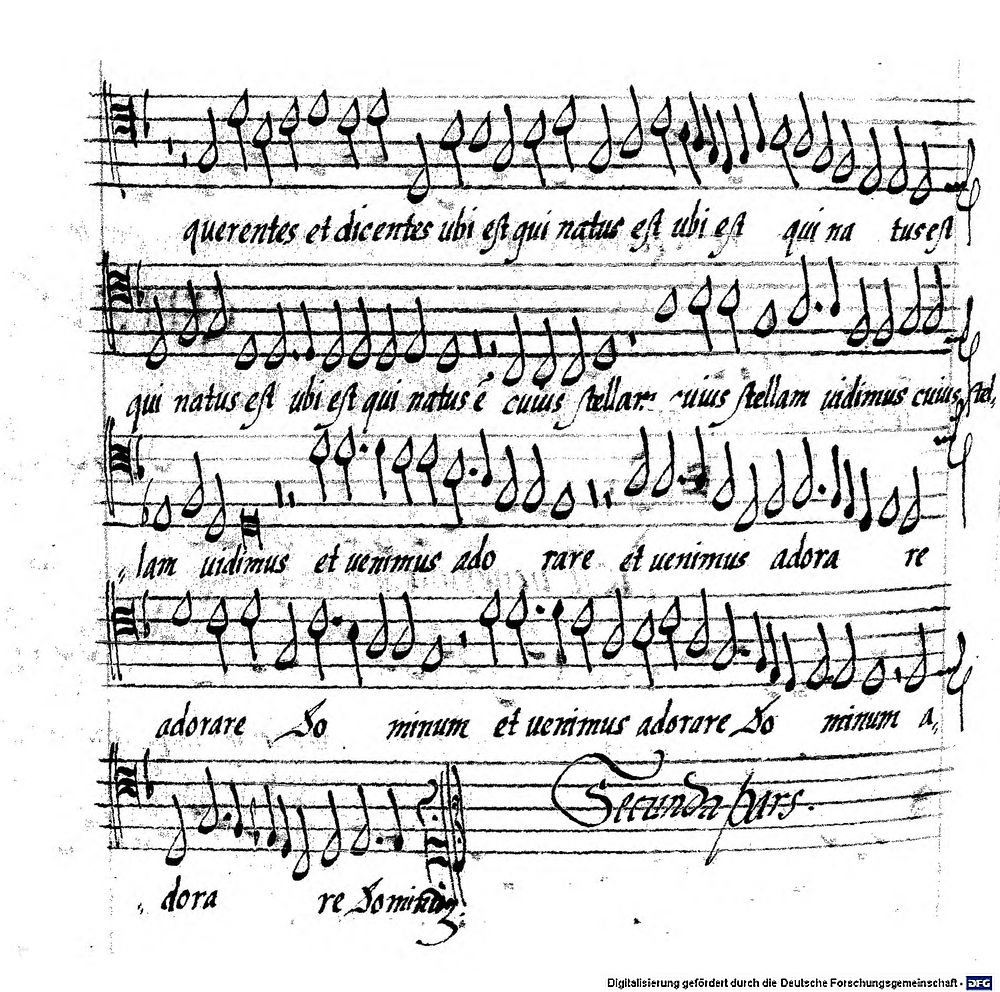 querentes et dicentes ubi est qui natus est ubi est qui na tus est
qui natus est ubi est qui natus ē cuius stellam cuius stellam uidimus cuius stel,
lam uidimus et uenimus ado rare et uenimus adora re
adorare Do minum et uenimus adorare Do minum a,
dora re Domi
Secunda pars.
Digitalisierung gefördert durch die Deutsche Forschungsgemeinschaft - DFG